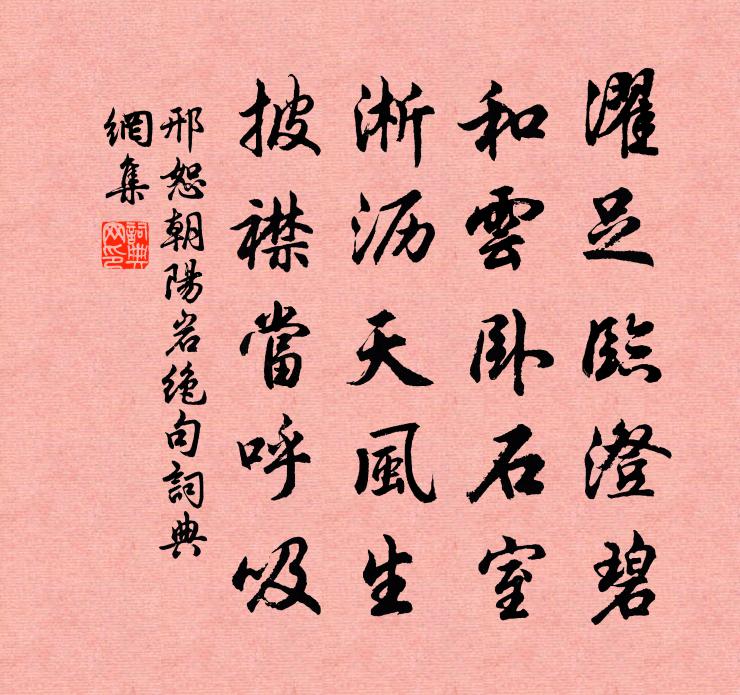 濯足臨澄碧
和雲卧石室
淅沥天風生
披襟當呼吸
邢恕朝陽岩绝句詞典
網集
詞典
网印